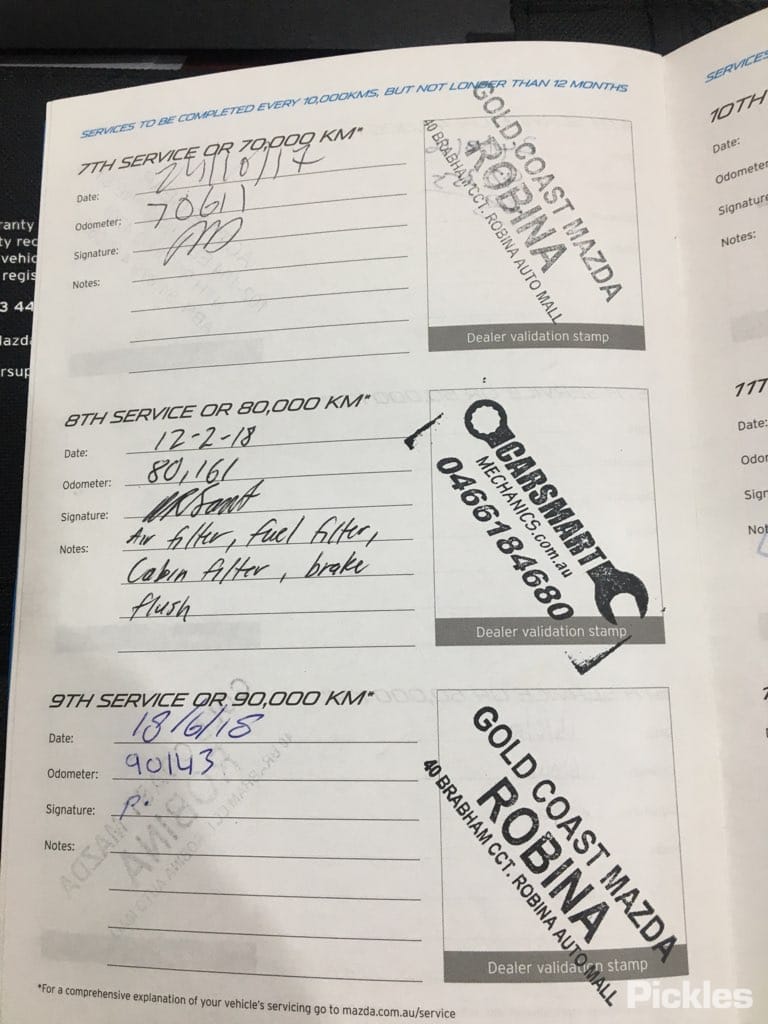 SERVICES TO BE COMPLETED EVERY 10,000KMS, BUT NOT LONGER THAN 12 MONTHS
7TH SERVICE OR 70,000 KM*
Date: 24/10/17
Odometer: 70611
Signature:
Notes:
GOLD COAST MAZDA
ROBINA
40 BRABHAM CCT. ROBINA AUTO MALL
Dealer validation stamp
8TH SERVICE OR 80,000 KM*
Date: 12-2-18
Odometer: 80,161
Signature:
Notes: Air filter, fuel filter,
Cabin filter, brake
flush
CARSMART
MECHANICS.com.au
0466184680
Dealer validation stamp
9TH SERVICE OR 90,000 KM*
Date: 18/6/18
Odometer: 90143
Signature: P.
Notes:
GOLD COAST MAZDA
ROBINA
40 BRABHAM CCT. ROBINA AUTO MALL
Dealer validation stamp
*For a comprehensive explanation of your vehicle's servicing go to mazda.com.au/service
SERVICES
10TH
Date:
Odometer
Signature
Notes:
11T
Date:
Odor
Sign
Not
ranty
ty rec
vehic
regis
3 44
Mazda
rsup
Pickles